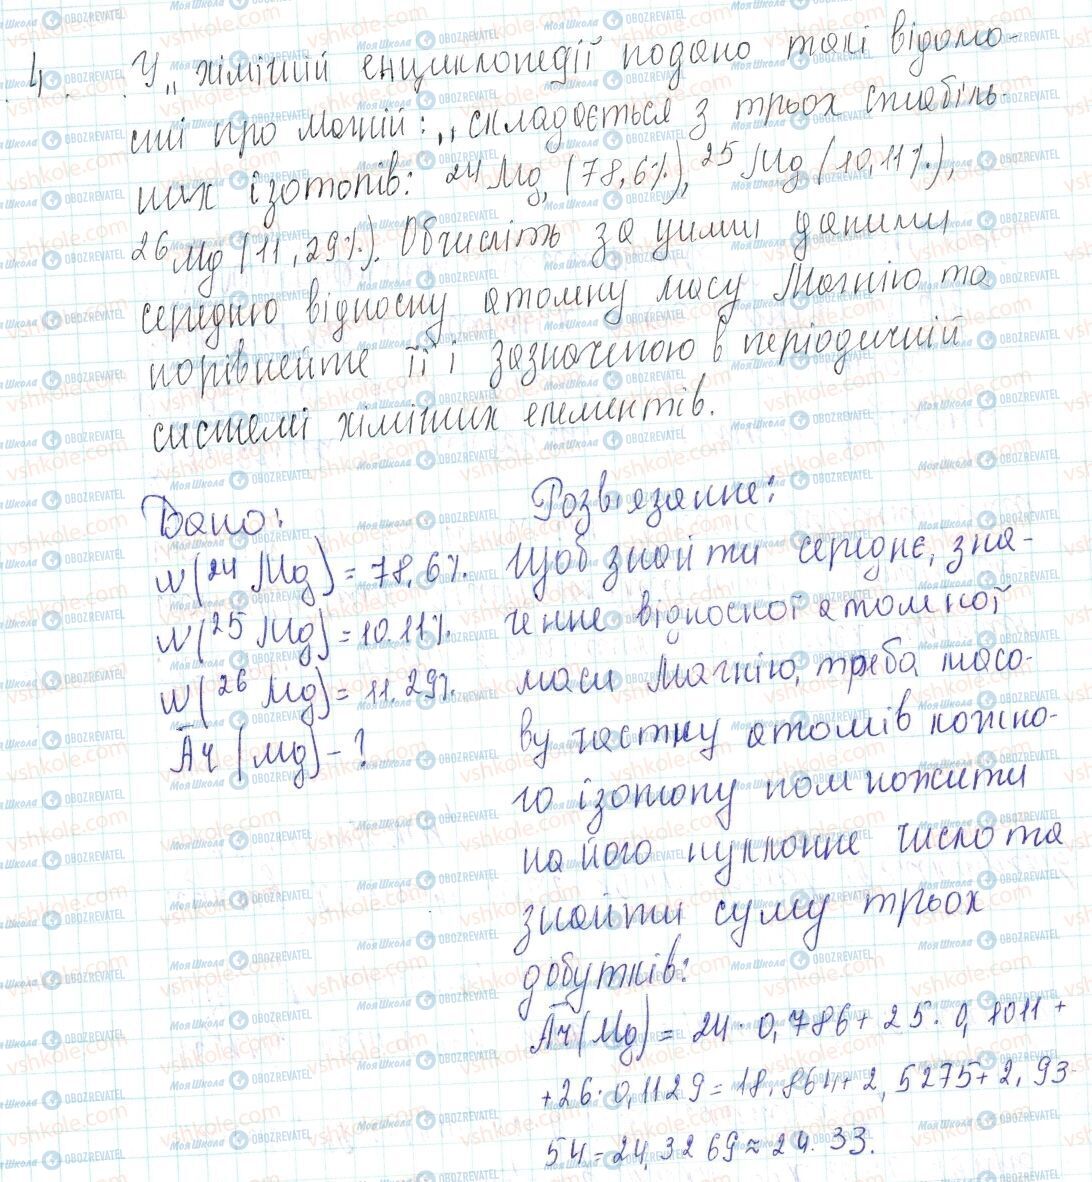 4. У „хімічній енциклопедії подано такі відомо-
сті про магній: „складається з трьох стабіль-
них ізотопів: 24 Mg (78,6%), 25 Mg (10,11%),
26 Mg (11,29%). Обчисліть за цими даними
середню відносну атомну масу Магнію та
порівняйте її і зазначеною в періодичній
системі хімічних елементів.
Дано:
W(24 Mg) = 78,6%.
W(25 Mg) = 10.11%.
W(26 Mg) = 11.29%.
Ar (Mg) - ?
Розв'язання:
Щоб знайти середнє, зна-
чення відносної атомної
маси Магнію, треба масо-
ву частку атомів кожно-
го ізотопу помножити
на його нуклонне число та
знайти суму трьох
добутків:
Ar(Mg) = 24 · 0,786 + 25 · 0,1011 +
+26 · 0,1129 = 18,864 + 2,5275 + 2,93-
54 = 24,3269 ≈ 24.33.